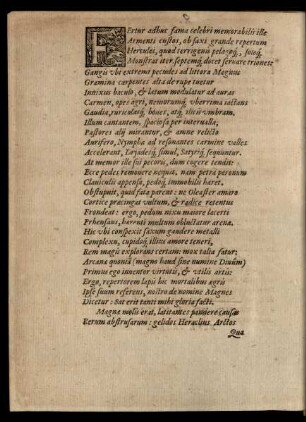 FErtur adhuc fama celebri memorabilis ille
Armenti custos, ob saxi grande repertum
Herculei, quod terrigenis pelagoq́,
Monstrat iter septemq́, docet seruare triones
Gangis vbi extremæ pecudes ad littora Magnus
Gramina carpentes alta de rupe tuetur
Innixus baculo, & latum modulatur ad auras
Carmen, opes agri, nemorumq́ vberrima iactans
Gaudia, ruricolasq́, boues, atq́, ilicis vmbram.
Illum cantantem, sparsosa per interualla,
Pastores alij mirantur, & amne relicto
Aurifero, Nympha ad resonantes carmine valles
Accelerant, Dryadesq́ simul, Satyriq́ sequuntur.
At memor ille sui pecoris, dum cogere tendit
Ecce pedes remouere nequit, nam petra peronum
Clauiculis appensa, pediq́ immobilis hæret.
Obstupuit, quid fata parent: vt Oleaster amaro
Cortice præcingat vultum, & radice retentus
Frondeat: ergo, pedum nixu maiore lacerti
Prehensans, haerenti multum obluctatur arena.
Hic vbi conspexit saxum gaudere metalli
Complexu, cupidoq́ illius amore teneri,
Rem magis explorans certam: mox talia fatur;
Arcana quanta (magnu haud sine numine Diuûm)
Primus ego inuentor virtutis, & vtilis artis:
Ergo, repertorem lapis hic mortalibus agris
Ipse suum referens, nostro de nomine Magnes
Dicetur: Sat erit tanti mihi gloria facti.
Magna molis erat, latitantes pandere causas
Rerum abstrusarum: gelidos Heraclius Arctos
Qua